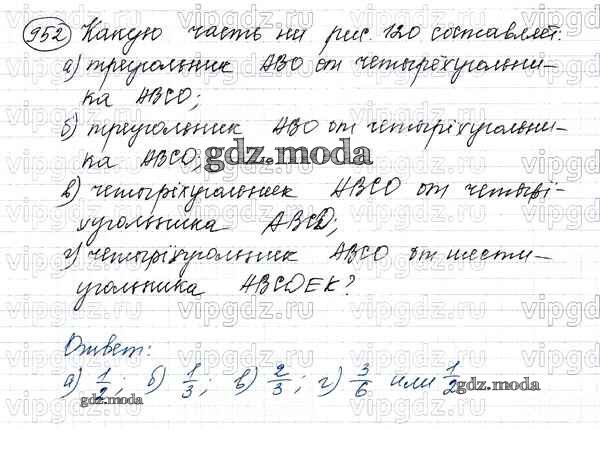 952 Какую часть на рис. 120 составляет:
а) треугольник АВО от четырёхугольни-
ка АВСО;
б) треугольник АВО от четырёхугольни-
ка АВСО;
gdz.moda
в) четырёхугольник АВСО от четырё-
хугольника АВСD;
г) четырёхугольник АВСО от шести-
угольника ABCDEK?
Ответ:
а) 1/2; б) 1/3; в) 2/3; г) 3/6 или 1/2
gdz.moda gdz.moda
vipgdz.ru